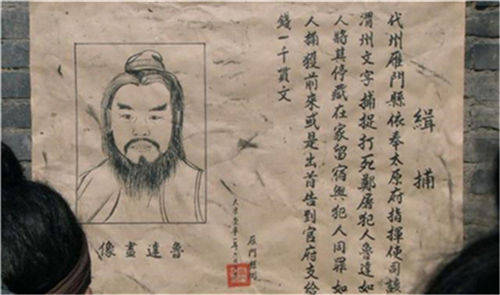 緝捕
代州雁門縣依奉太原府指揮使司該
渭州文字捕捉打死鄭屠犯人魯達如
人將其停藏在家留宿與犯人同罪如
人捕獲前來或是出首告到官府支給
錢一千貫文
雁門縣
魯達畫像